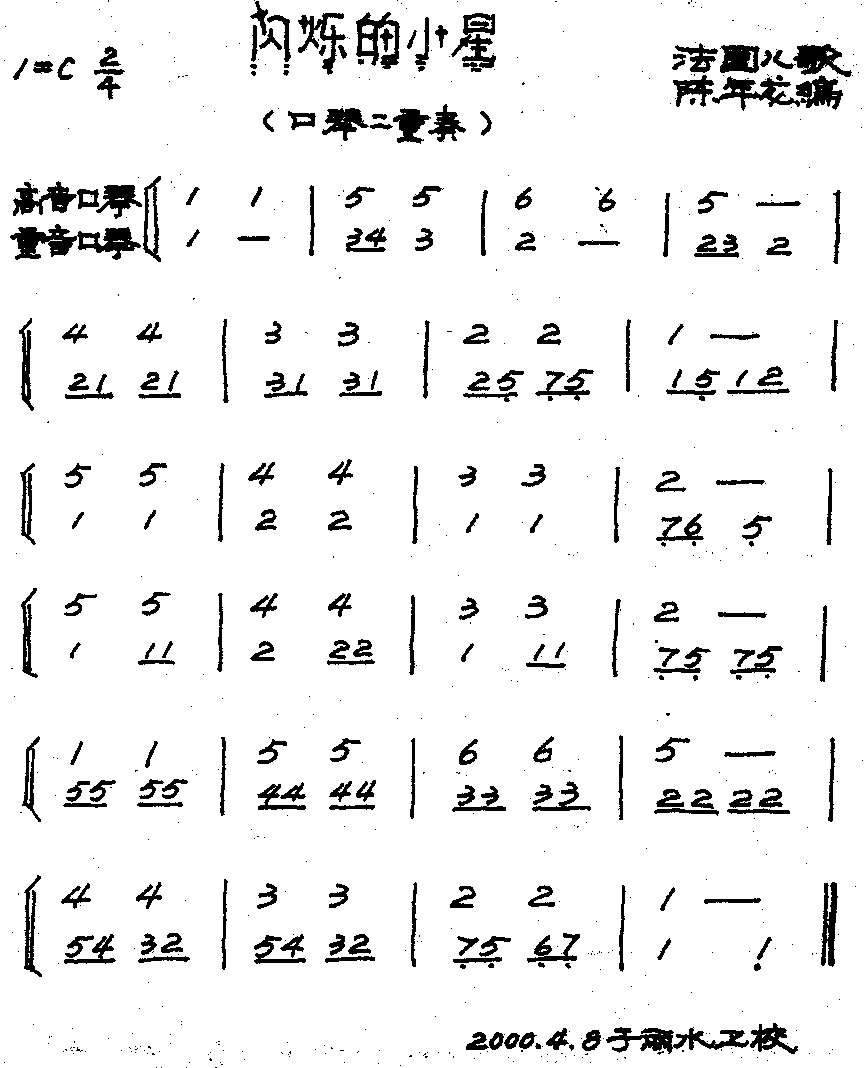 闪烁的小星
1=C 2/4
法国儿歌
陈年花编
（口琴二重奏）
高音口琴 1 1 | 5 5 | 6 6 | 5 — |
重音口琴 1 — | 34 3 | 2 — | 23 2 |
4 4 | 3 3 | 2 2 | 1 — |
21 21 | 31 31 | 25 75 | 15 12 |
5 5 | 4 4 | 3 3 | 2 — |
1 1 | 2 2 | 1 1 | 76 5 |
5 5 | 4 4 | 3 3 | 2 — |
1 11 | 2 22 | 1 11 | 75 75 |
1 1 | 5 5 | 6 6 | 5 — |
55 55 | 44 44 | 33 33 | 22 22 |
4 4 | 3 3 | 2 2 | 1 — ||
54 32 | 54 32 | 75 67 | 1 1 ||
2000.4.8于丽水卫校